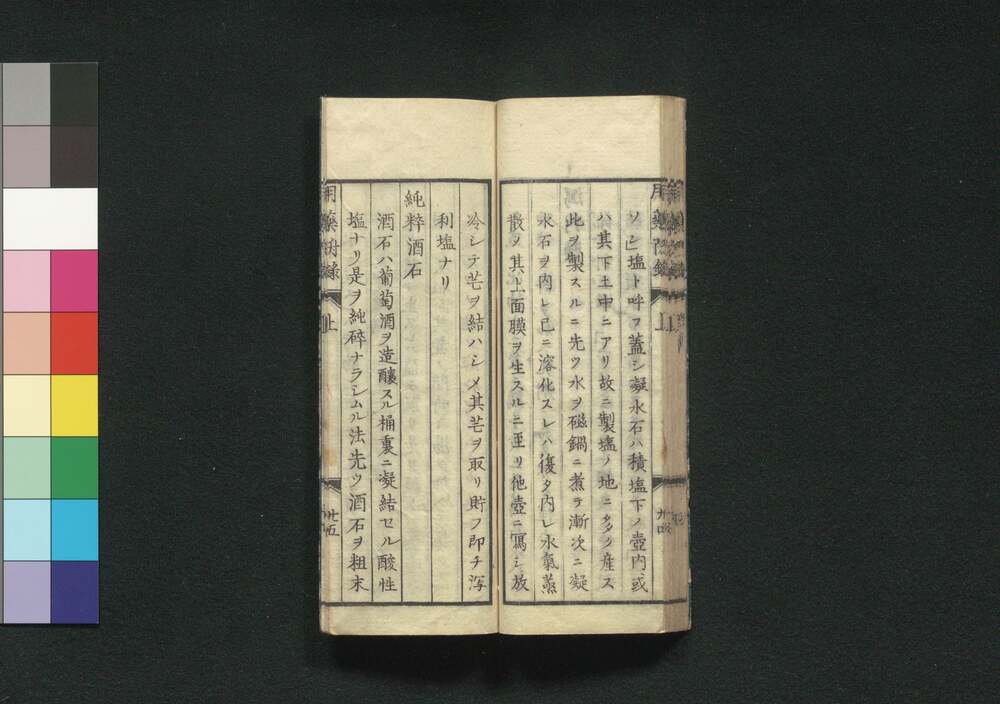 ソレ塩ト呼フ蓋シ凝水石ハ積塩下ノ壺内或
ハ其下土中ニアリ故ニ製塩ノ地ニ多ク産ス
此ヲ製スルニ先ツ水ヲ磁鍋ニ煮テ漸次ニ凝
水石ヲ内レ已ニ溶化スレハ復タ内レ水氣蒸
散ノ其上面膜ヲ生スルニ至リ他壺ニ寫シ放
冷シテ芒ヲ結ハシメ其芒ヲ取リ貯フ即チ泻
利塩ナリ
純粹酒石
酒石ハ葡萄酒ヲ造釀スル桶裏ニ凝結セル酸性
塩ナリ是ヲ純碎ナラシムル法先ツ酒石ヲ粗末
用藥附録
上
廿五